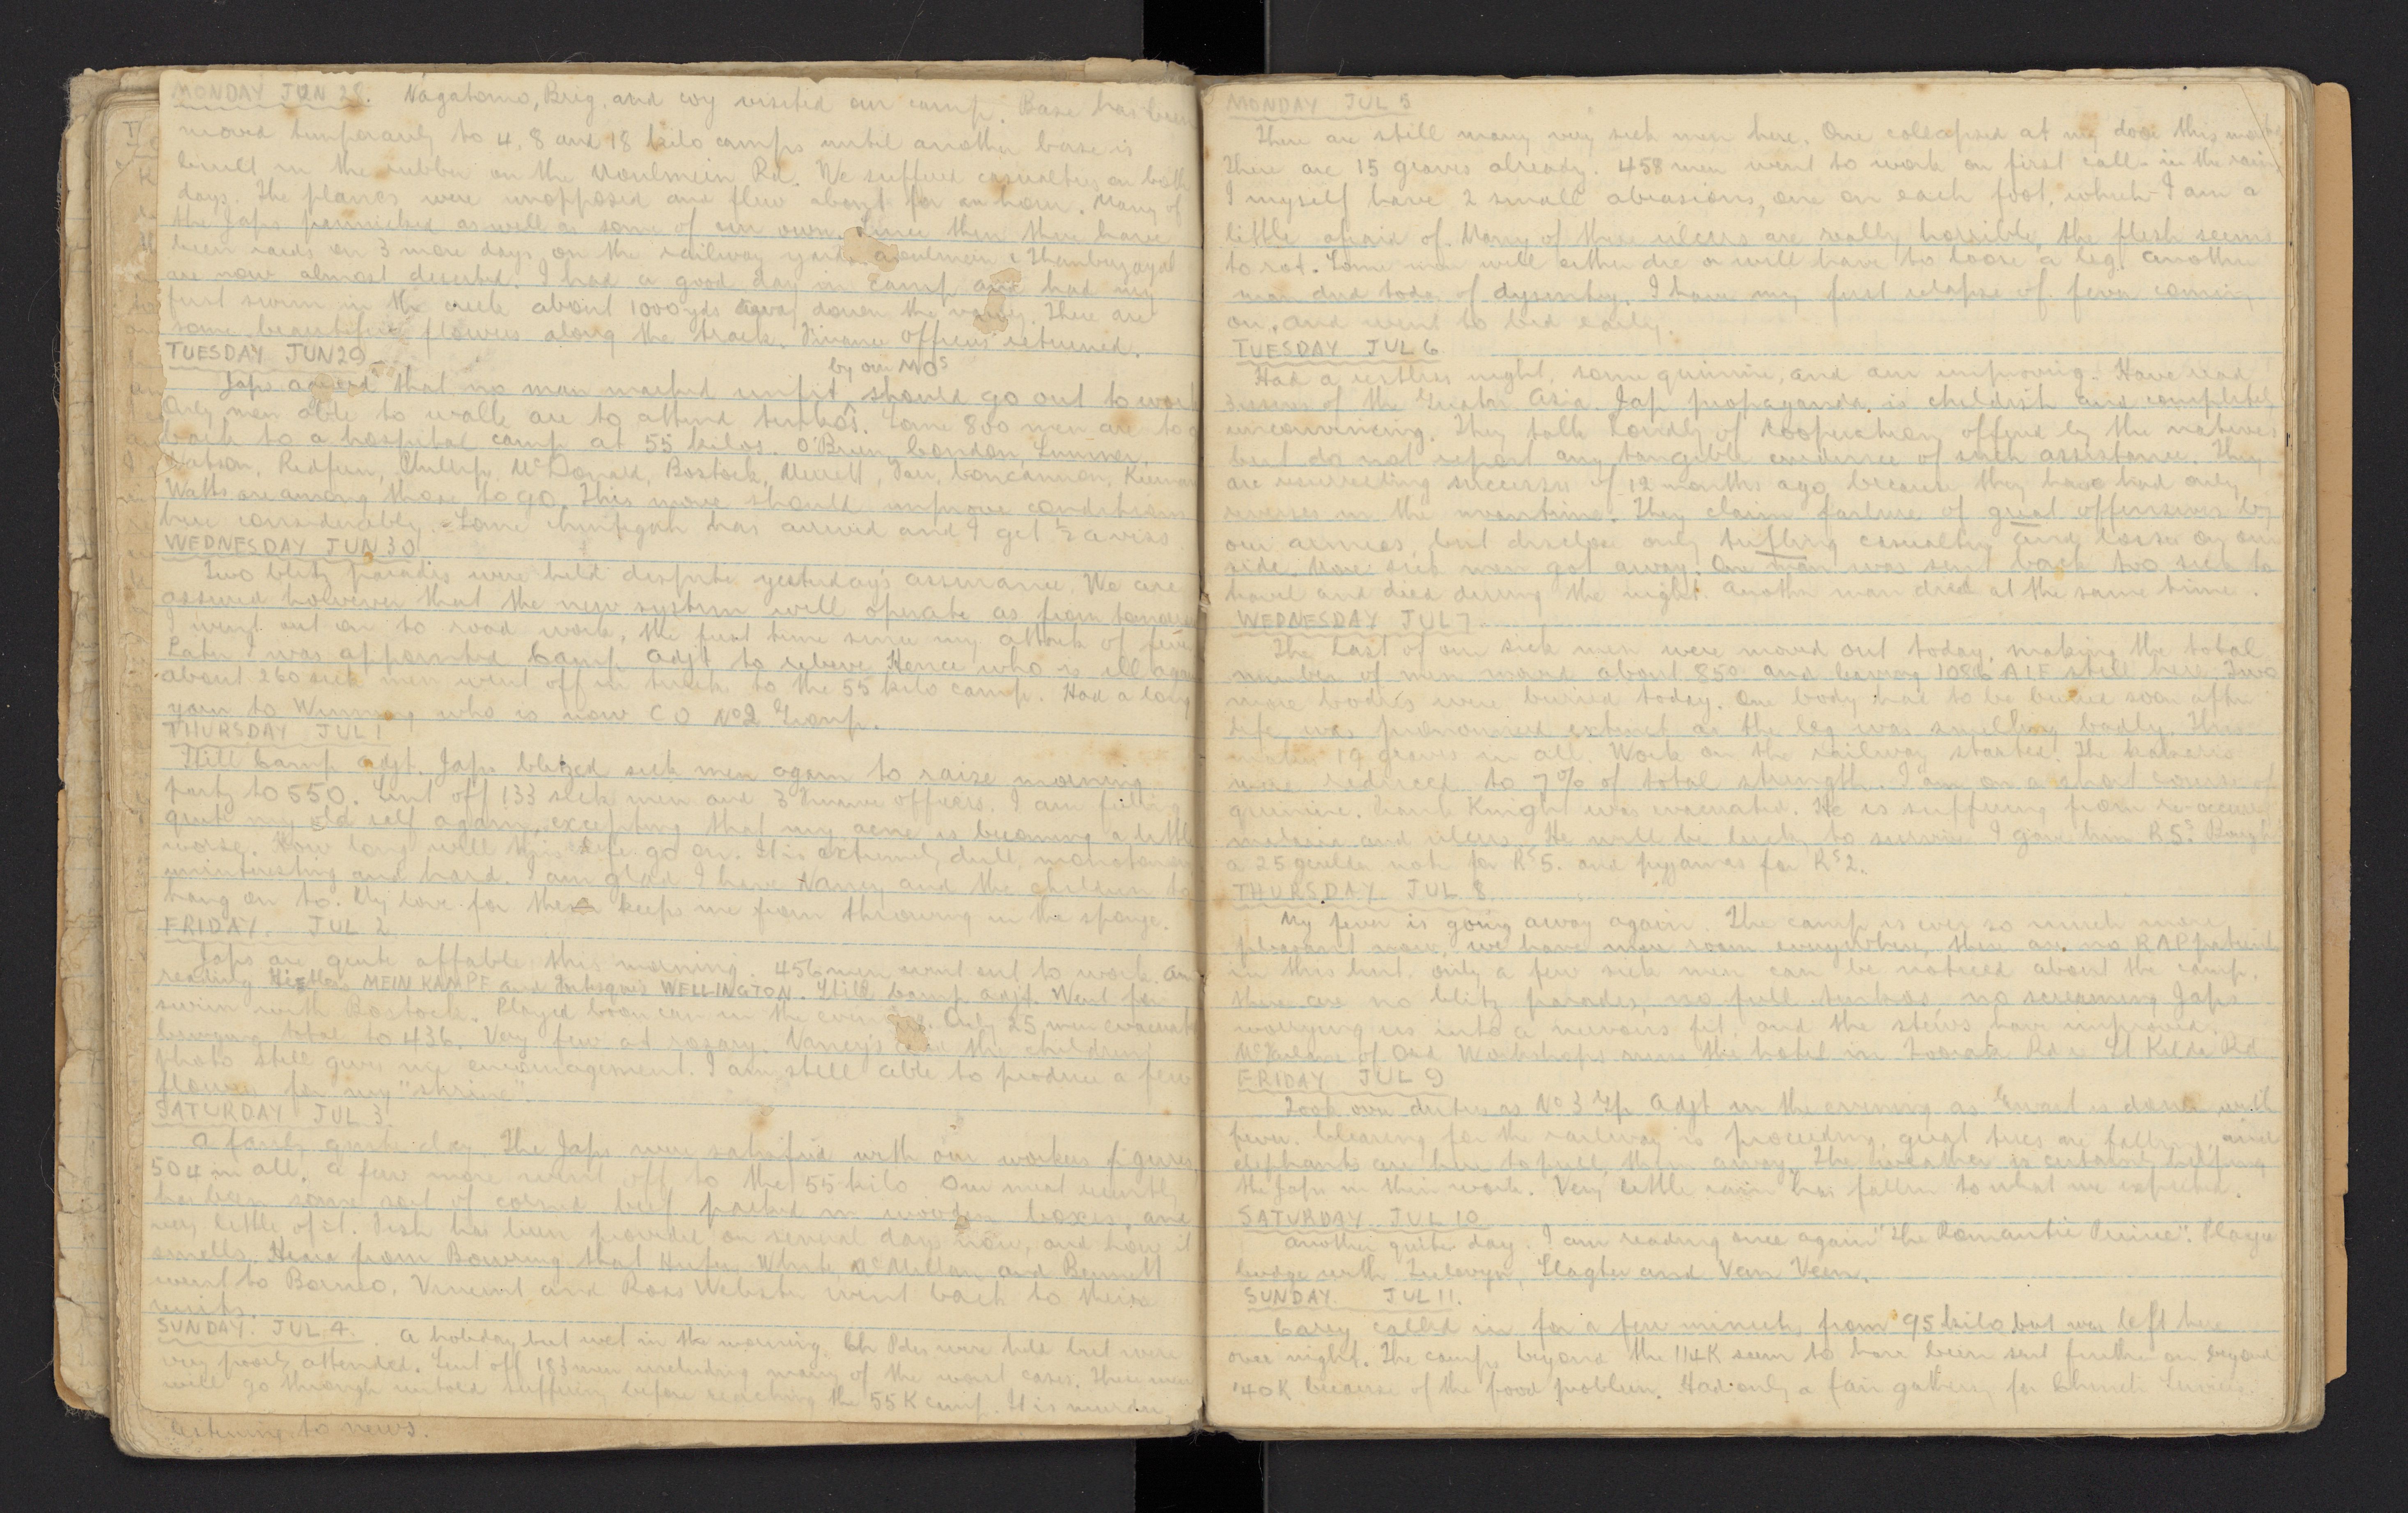 MONDAY JUN 28. Nagatomo, Brig. and coy visited our camp. Base has been
moved temporarily to 4, 8 and 18 kilo camps until another base is
built in the rubber on the Moulmein Rd. We suffered casualties on both
days. The planes were unopposed and flew about for an hour. Many of
the Japs panicked as well as some of our own. Since then there have
been raids on 3 more days on the railway yards. Moulmein & Thanbyuzayat
are now almost deserted. I had a good day in camp and had my
first swim in the creek about 1000 yds away down the valley. There are
some beautiful flowers along the track. Finance officers returned.
TUESDAY JUN 29
Japs agreed that no man marked unfit by our MOs should go out to work
Only men able to walk are to attend tenkos. Some 800 men are to go
back to a hospital camp at 55 kilos. O'Brien, Condon, Lummer,
Watson, Redfern, Phillip, McDonald, Bostock, Merrett, Farr, Concannon, Kiernan
Watts are among those to go. This move should improve conditions
here considerably. Some chinfigah has arrived and I get ½ a viss
WEDNESDAY JUN 30
Two blitz parades were held despite yesterday's assurance. We are
assured however that the new system will operate as from tomorrow
I went out on to road work, the first time since my attack of fever
Later I was appointed Camp Adjt to relieve Hence who is ill again
about 260 sick men went off in trucks to the 55 kilo camp. Had a long
yarn to Winning who is now CO No 2 Group.
THURSDAY JUL 1
Still Camp Adjt. Japs blitzed sick men again to raise morning
party to 550. Sent off 133 sick men and 3 Finance officers. I am feeling
quite my old self again, excepting that my acne is becoming a little
worse. How long will this life go on. It is extremely dull, monotonous
uninteresting and hard. I am glad I have Nancy and the children to
hang on to. My love for them keeps me from throwing in the sponge.
FRIDAY. JUL 2
Japs are quite affable this morning. 456 men went out to work. Am
reading Hitler's MEIN KAMPF and Fortesque's WELLINGTON. Still Camp adjt. Went for
swim with Bostock. Played boon can in the evening. Only 25 men evacuated
bringing total to 436. Very few at rosary. Nancy's and the children's
photo still gives me encouragement. I am still able to produce a few
flowers for my "shrine".
SATURDAY JUL 3.
A fairly quiet day. The Japs were satisfied with our workers figures,
504 in all. A few more went off to the 55 kilo. Our meat recently
has been some sort of corned beef packed in wooden boxes, and
very little of it. Fish has been provided on several days now, and how it
smells. Hear from Bowring that Hufer, White, McMillan and Bennett
went to Borneo, Vincent and Ross Webster went back to their
units.
SUNDAY. JUL 4. A holiday but wet in the morning. Ch Pdes were held but were
very poorly attended. Sent off 183 men including many of the worst cases. These men
will go through untold suffering before reaching the 55K camp. It is murder
listening to news.
MONDAY JUL 5
There are still many very sick men here. One collapsed at my door this morning
There are 15 graves already. 458 men went to work on first call in the rain
I myself have 2 small abrasions, one on each foot, which I am a
little afraid of. Many of these ulcers are really horrible, the flesh seems
to rot. Some men will either die or will have to loose a leg. Another
man died today of dysentry. I have my first relapse of fever coming
on, and went to bed early.
TUESDAY JUL 6
Had a restless night, some quinine, and am improving. Have read
3 issues of the Greater Asia. Jap propaganda is childish and completely
unconvincing. They talk loudly of cooperation offered by the natives
but do not report any tangible evidence of such assistance. They
are resurrecting successes of 12 months ago because they have had only
reverses in the meantime. They claim failure of great offensives by
our armies, but disclose only trifling casualties and losses on our
side. More sick men got away. One man was sent back too sick to
travel and died during the night. Another man died at the same time.
WEDNESDAY JUL 7
The last of our sick men were moved out today, making the total
number of men moved about 850 and leaving 1086 AIF still here. Two
more bodies were buried today. One body had to be buried soon after
life was pronounced extinct as the leg was smelling badly. This
makes 19 graves in all. Work on the railway started. The
were reduced to 7% of total strength. I am on a short course of
quinine. Knight was evacuated. He is suffering from re-occurring
malaria and ulcers. He will be lucky to survive. I gave him R5s. Bought
a 25 guilder note for Rs 5. and pyjamas for Rs 2.
THURSDAY JUL 8
My fever is going away again. The camp is ever so much more
pleasant now, we have more room everywhere, there are no RAP patients
in this hut, only a few sick men can be noticed about the camp,
there are no blitz parades, no full tenkos, no screaming Japs
worrying us into a nervous fit, and the stews have improved.
McFarlane of Ord Workshops runs the hotel in Toorak Rd & St Kilda Rd
FRIDAY JUL 9
Took over duties as No 3 Gp Adjt in the evening as Ewart is down with
fever. Clearing for the railway is proceeding, great trees are falling, and
elephants are here to pull them away. The weather is certainly helping
the Japs in their work. Very little rain has fallen to what we expected.
SATURDAY JUL 10
Another quiet day. I am reading once again "The Romantic Prince". Played
bridge with Llewelyn, Slagter and Van Veen.
SUNDAY. JUL 11.
Carey called in for a few minutes from 95 kilo but was left here
over night. The camps beyond the 114K seem to have been sent further on beyond
140K because of the food problem. Had only a fair gathering for Church Service.